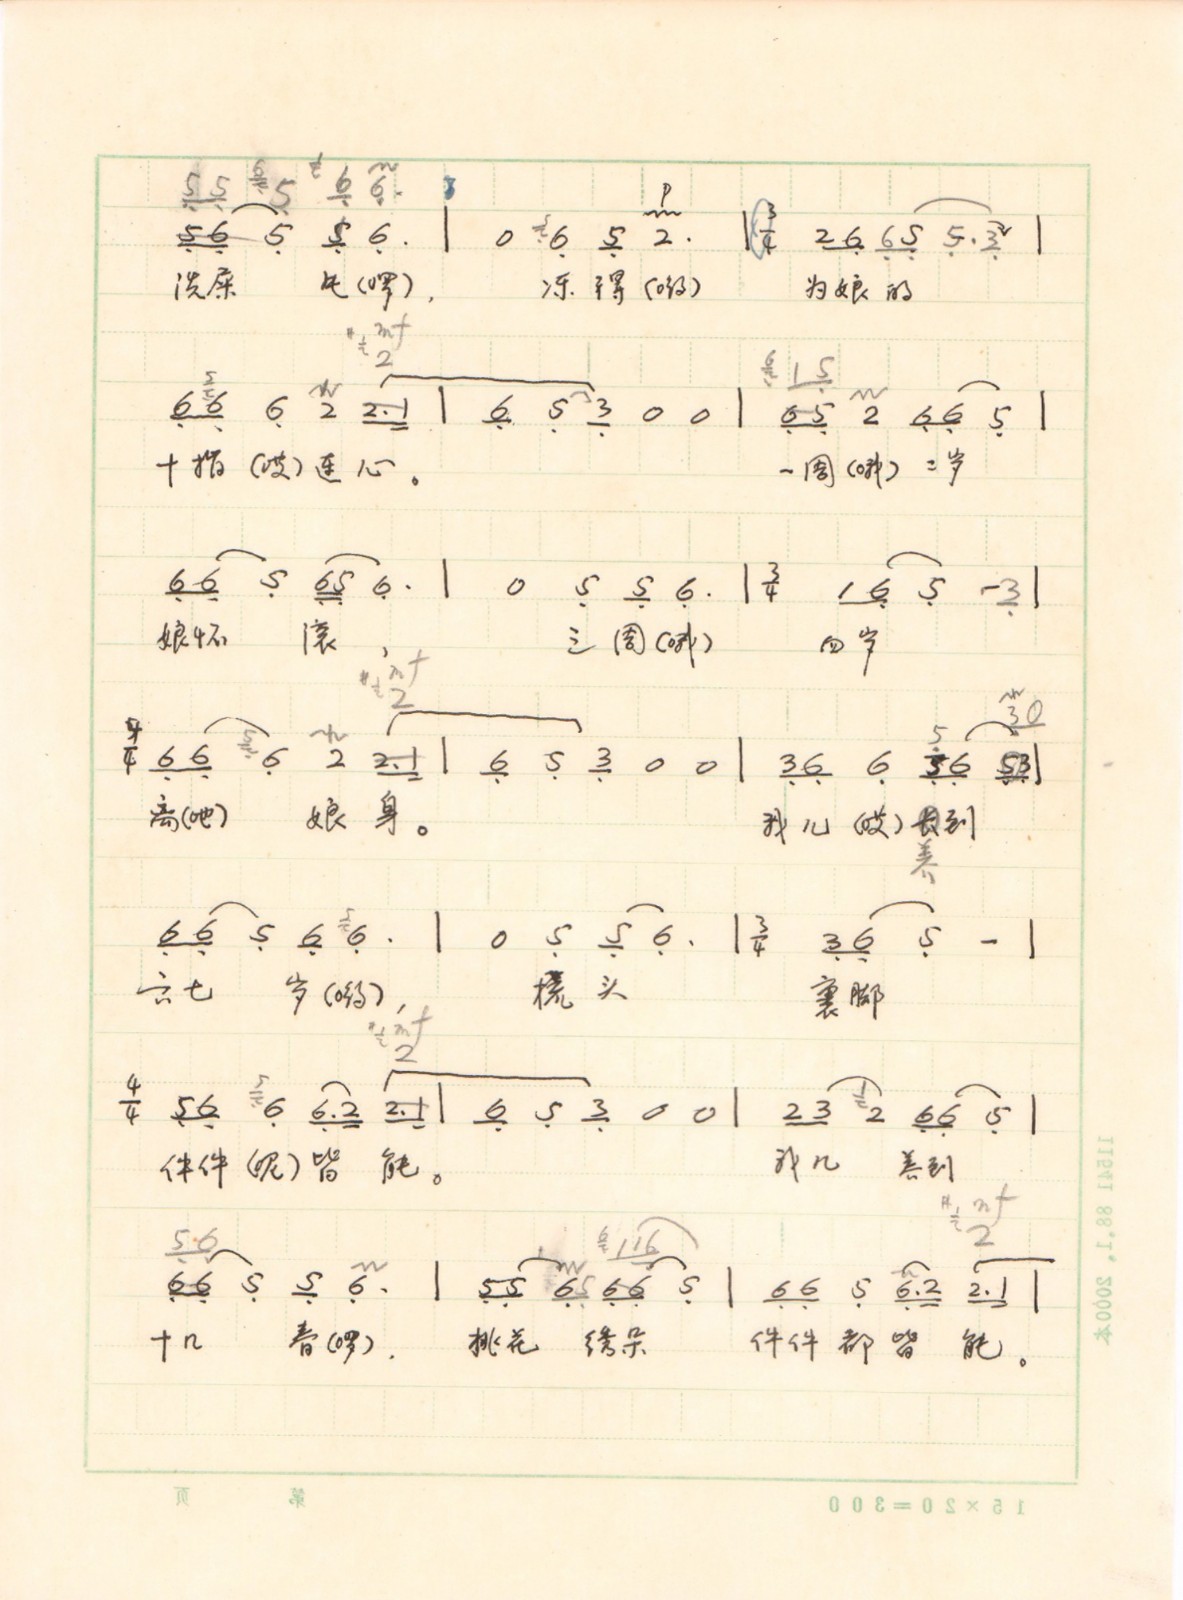 5 5 6 5 6 6.
5 6 5 5 6. | 0 5 6 5 2. | 3/4 2 6 6 5 5. 3 |
洗尿 片(啰), 冻得(哟) 为娘的
mf
2
6 1 5
6 6 6 2 2.1 | 6 5 3 0 0 | 6 5 2 6 6 5 |
十指(哎)连心。 一周(哦)二岁
6 6 5 6 5 6. | 0 5 5 6. | 3/4 1 6 5 - 3 |
娘怀 滚, 三周(哦) 四岁
mf
2
3 0
4/4 6 6 6 2 2.1 | 6 5 3 0 0 | 3 6 6 5 6 5 3 |
离(吔) 娘身。 我儿(哎)长到
养
6 6 5 6 6. | 0 5 5 6. | 3/4 3 6 5 - |
六七 岁(哟), 梳头 裹脚
mf
2
4/4 5 6 6 6.2 2.1 | 6 5 3 0 0 | 2 3 2 6 6 5 |
件件(呢)皆 能。 我儿 养到
mf
2
5 6 1 1 6
6 6 5 5 6. | 5 5 6 5 6 6 5 | 6 6 5 6.2 2.1 |
十几 春(啰), 挑花 绣朵 件件都皆 能。
11541 88.1. 2000本
第 页 15×20=300